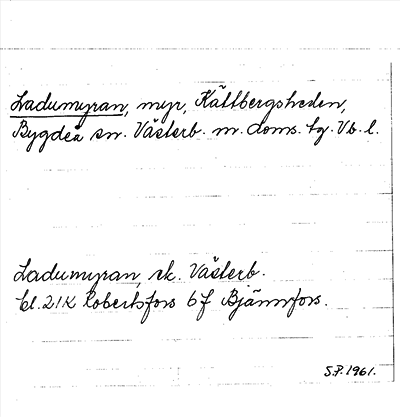 Ladumyran, myr, Kältbergsheden,
Bygdeå sn. Västerb. m. doms. tg. Vb. l.
Ladumyran, ek. Västerb.
bl. 21K Robertsfors 6f Bjännfors.
S.P. 1961.